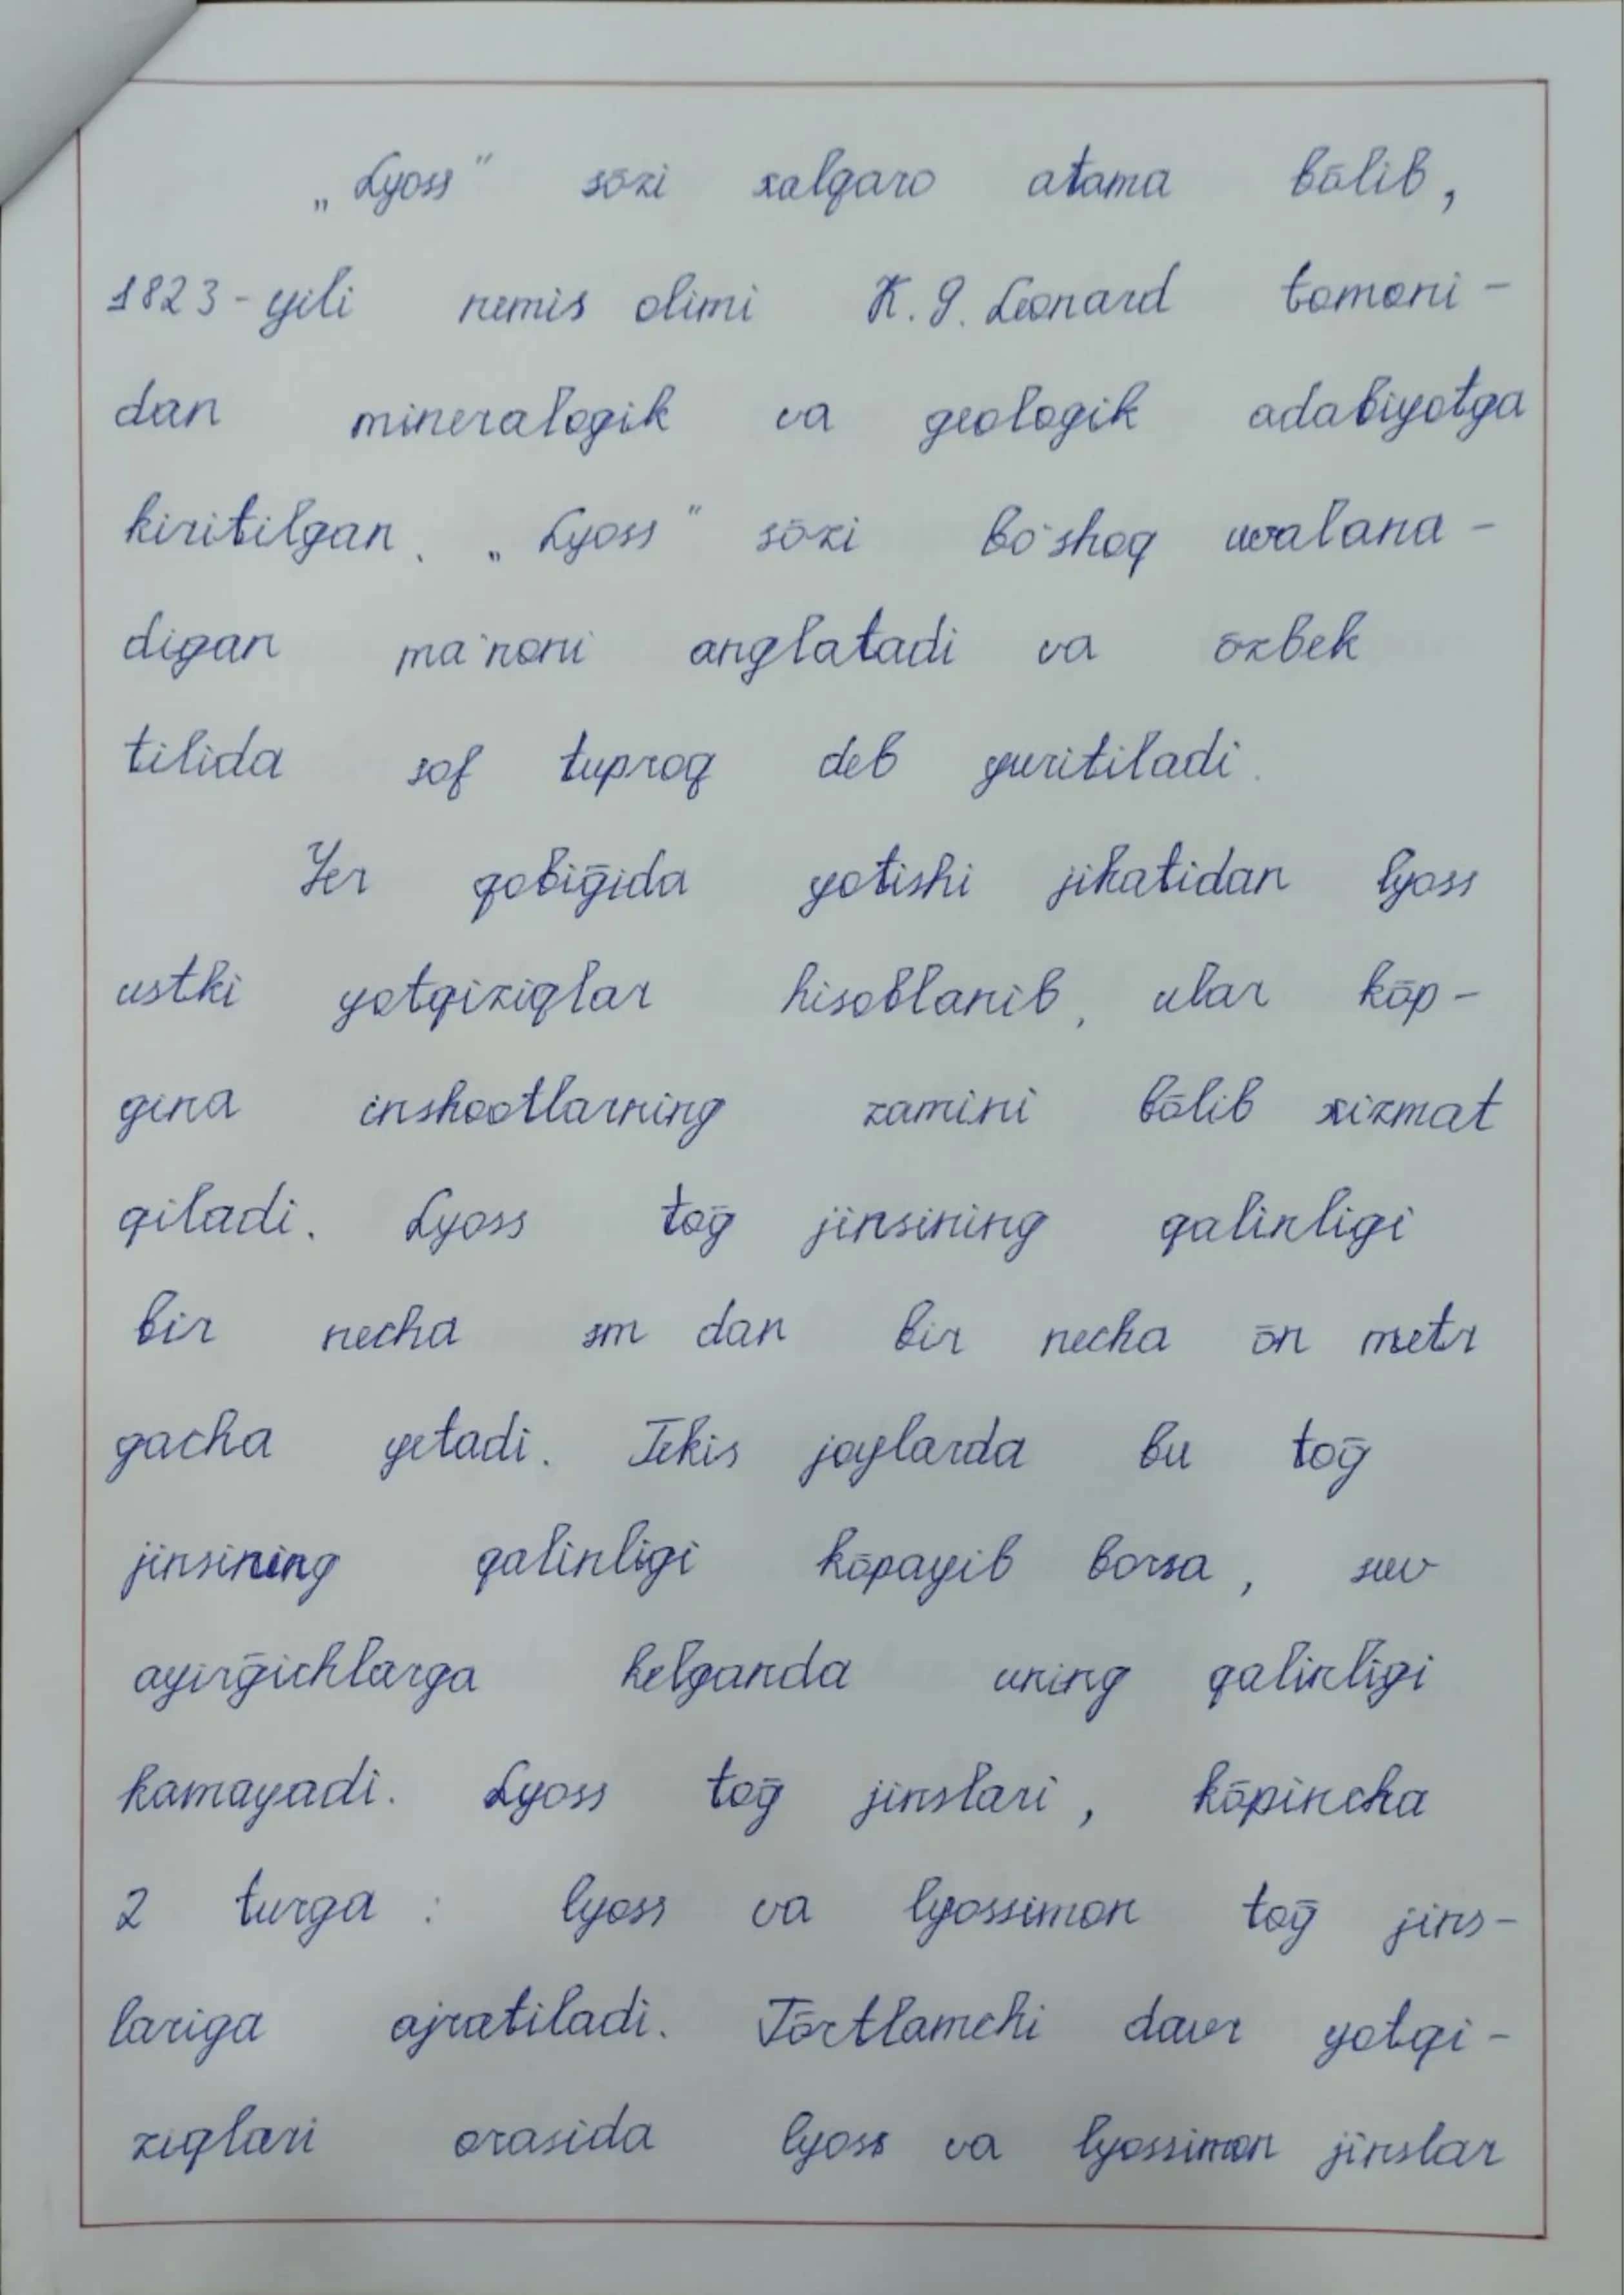 „Lyoss” sōzi xalqaro atama bōlib,
1823-yili nemis olimi K.G. Leonard tomoni-
dan mineralogik va geologik adabiyotga
kiritilgan. „Lyoss” sōzi bo'shoq uvalana-
digan ma'noni anglatadi va ōzbek
tilida sof tuproq deb yuritiladi.
Yer qobiḡida yotishi jihatidan lyoss
ustki yotqiziqlar hisoblanib, ular kōp-
gina inshootlarning zamini bōlib xizmat
qiladi. Lyoss toḡ jinsining qalinligi
bir necha sm dan bir necha ōn metr
gacha yetadi. Tekis joylarda bu toḡ
jinsining qalinligi kōpayib borsa, suv
ayirḡichlarga kelganda uning qalinligi
kamayadi. Lyoss toḡ jinslari, kōpincha
2 turga : lyoss va lyossimon toḡ jins-
lariga ajratiladi. Tōrtlamchi davr yotqi-
ziqlari orasida lyoss va lyossimon jinslar